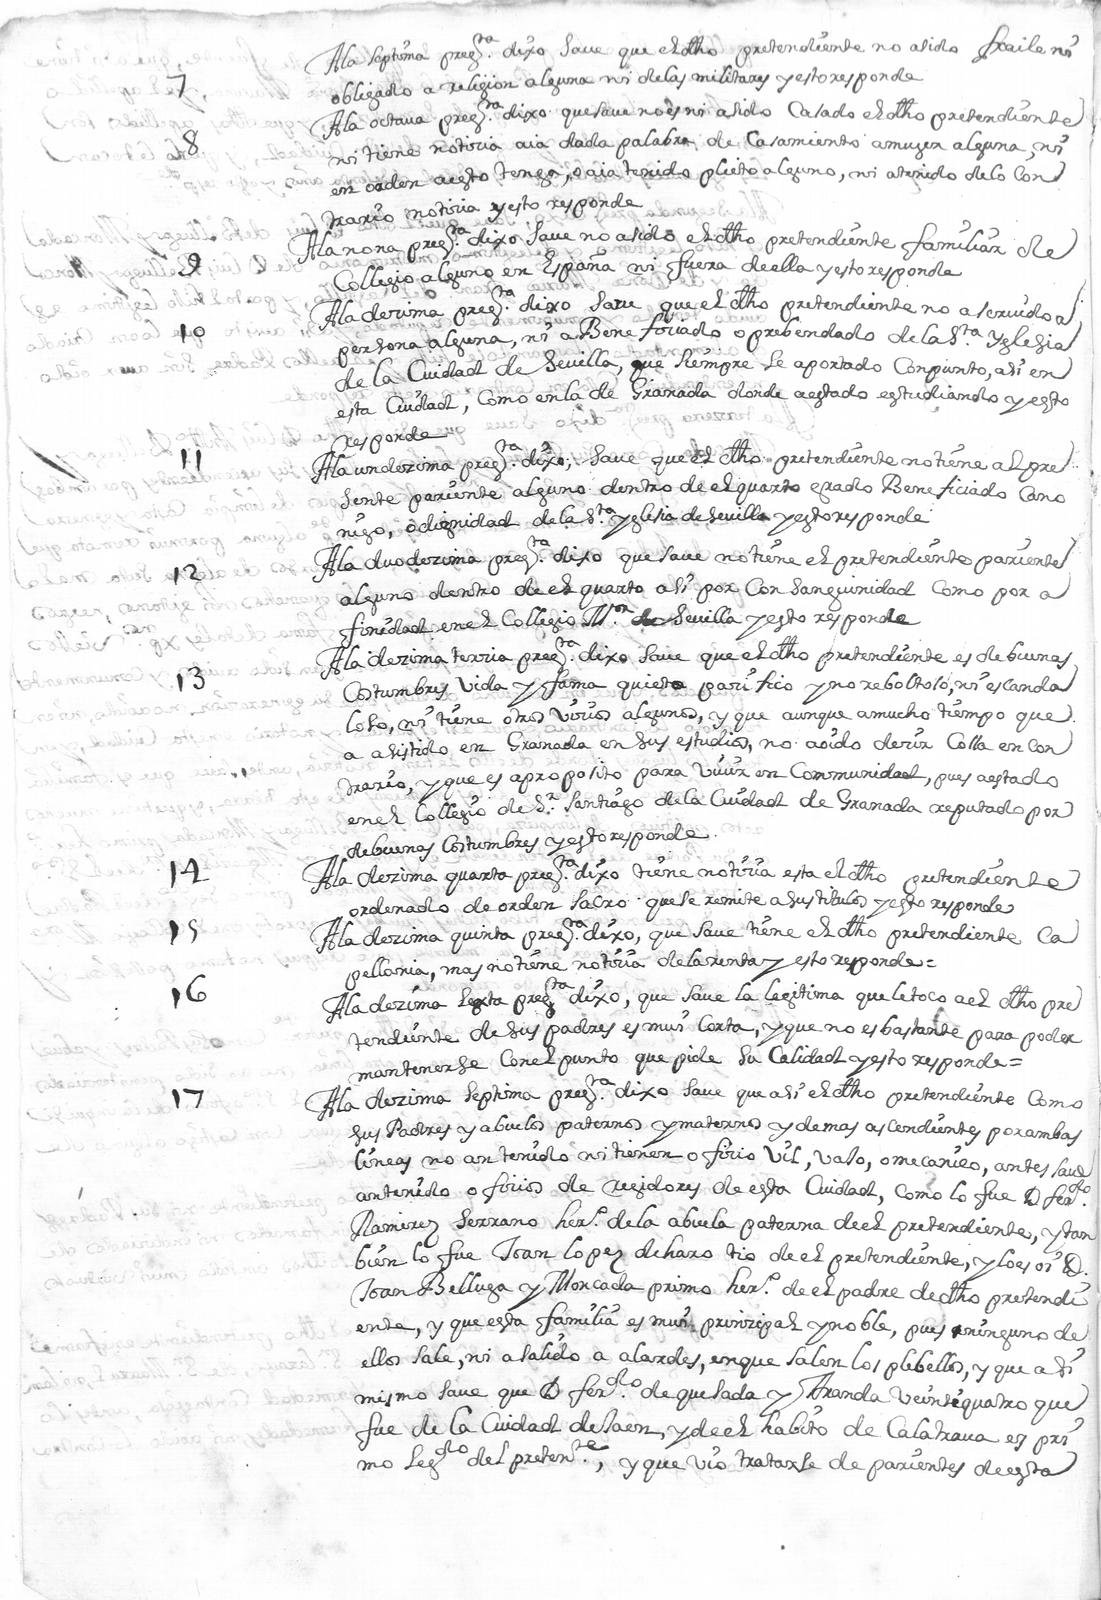 7 A la septima preg.ta dixo save que el dho pretendiente no a sido fraile ni
obligado a religion alguna ni de las militares y esto responde
8 A la octava preg.ta dixo que save no es ni a sido Casado el dho pretendiente
ni tiene notizia aia dada palabra de Casamiento a muger alguna, ni
en orden a esto tenga, o aia tenido pleito alguno, ni a tenido de lo con
trario notizia y esto responde
9 A la nona preg.ta dixo save no a sido el dho pretendiente familiar de
Collegio alguno en España ni fuera de ella y esto responde
10 A la dezima preg.ta dixo save que el dho pretendiente no a servido a
persona alguna, ni a Beneficiado o prebendado de la S.ta Yglezia
de la Cuidad de Sevilla, que siempre se a portado Con punto, asi en
esta Ciudad, Como en la de Granada donde a estado estudiando y esto
responde
11 A la undezima preg.ta dixo, save que el dho pretendiente no tiene al pre
sente pariente alguno dentro de el quarto grado Beneficiado Cano
nigo, o dignidad de la S.ta yglesia de Sevilla y esto responde
12 A la duodezima preg.ta dixo que save no tiene el pretendiente pariente
alguno dentro de el quarto asi por Consanguinidad como por a
finidad en el Collegio M.or de Sevilla y esto responde
13 A la dezima terzia preg.ta dixo save que el dho pretendiente es de buenas
Costumbres vida y fama quieto pazifico y no reboltoso, ni escanda
loso, ni tiene otros vizios algunos, y que aunque a mucho tiempo que
a asistido en Granada en sus estudios, no a oido dezir Cosa en con
trario, y que es a proposito para vivir en Communidad, pues a estado
en el Collegio de S.r Santiago de la Cuidad de Granada reputado por
de buenas Costumbres y esto responde.
14 A la dezima quarta preg.ta dixo tiene notizia esta el dho pretendiente
ordenado de orden sacro que se remite a sus titulos y esto responde
15 A la dezima quinta preg.ta dixo, que save tiene el dho pretendiente Ca
pellania, mas no tiene notizia de la renta y esto responde=
16 A la dezima sexta preg.ta dixo, que save la legitima que le toco a el dho pre
tendiente de sus padres es mui Corta, y que no es bastante para poder
mantenerse Con el punto que pide su Calidad y esto responde=
17 A la dezima septima preg.ta dixo save que asi el dho pretendiente Como
sus Padres y abuelos paternos y maternos y demas ascendientes por ambas
lineas no an tenido ni tienen ofizio vil, vaso, o mecanico, antes save
an tenido ofizios de regidores de esta Cuidad, como lo fue D fer.do
Ramirez Serrano her.o de la abuela paterna de el pretendiente, y tan
bien lo fue Joan lopez de haro tio de el pretendiente, y lo es oi D.
Joan Belluga y Moncada primo her.o de el padre de dho pretendi
ente, y que esta familia es mui prinzipal y noble, pues ninguno de
ellos sale, ni a salido a alardes, en que salen los plebellos, y que asi
mismo save que D fer.do de quesada y Aranda veintiquatro que
fue de la Cuidad de Jaen, y de el habito de Calatrava es pri
mo seg.do del preten.te, y que vio tratarse de parientes de esta